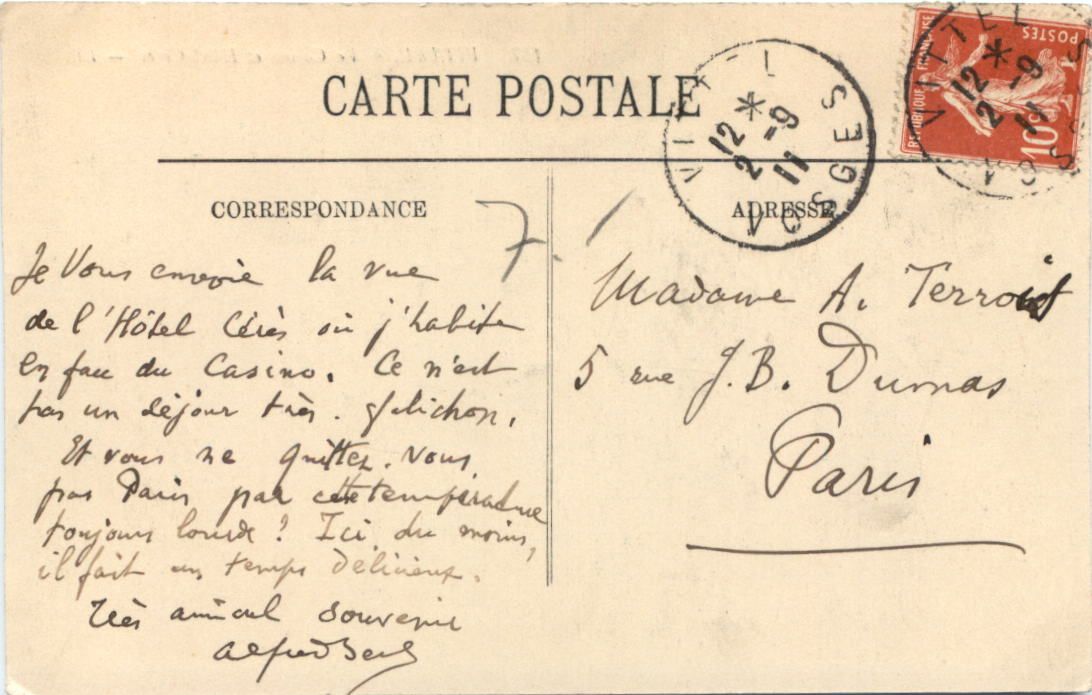 CARTE POSTALE
CORRESPONDANCE
ADRESSE
7.
VITTEL
12 *
2 - 9
11
VOSGES
VITTEL
12 *
2 - 9
11
REPUBLIQUE FRANÇAISE
POSTES
10c
Je vous envoie la vue
de l'Hôtel Cérès où j'habite
en face du Casino. Ce n'est
pas un séjour très folichon.
Et vous ne quittez-vous
pas Paris par cette température
toujours lourde ? Ici du moins,
il fait un temps délicieux.
Très amical souvenir
Alfred
Madame A. Terroin
5 rue J.B. Dumas
Paris